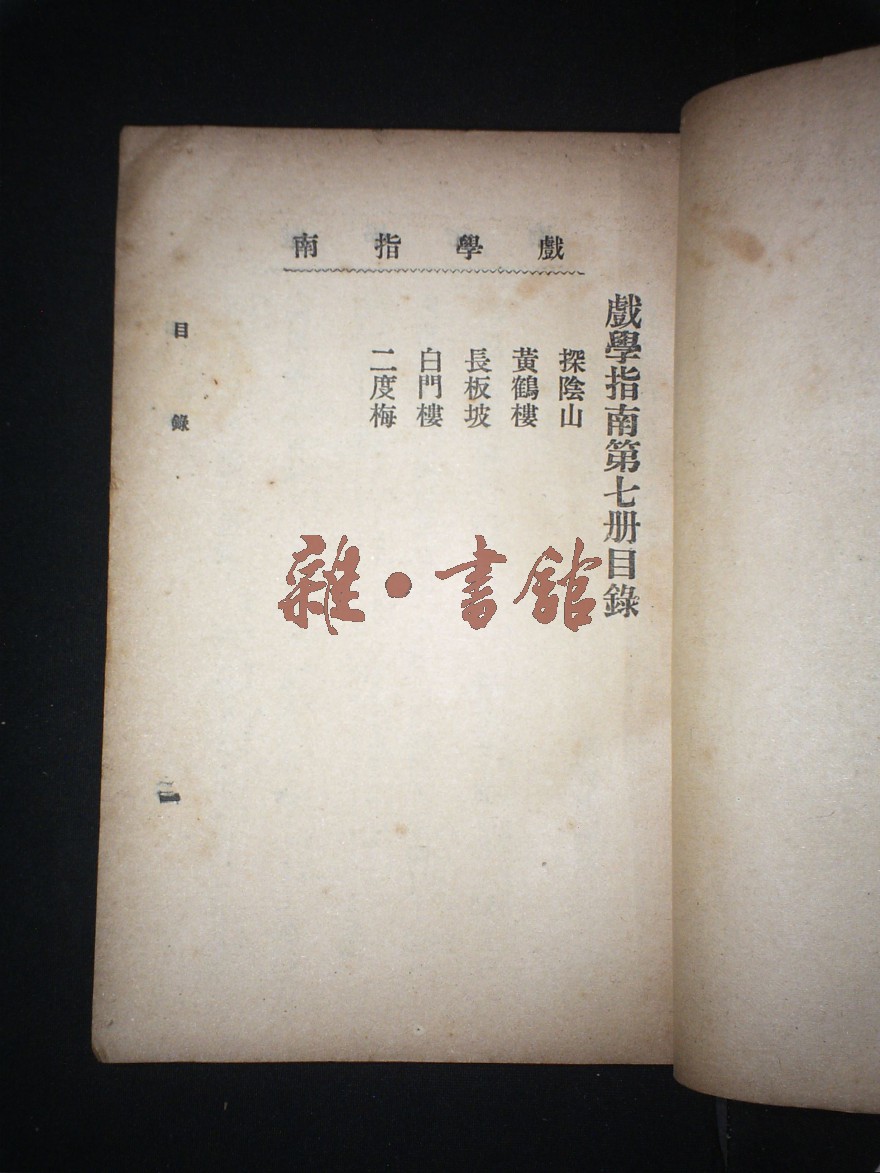 戲學指南
戲學指南第七册目錄
探陰山
黃鶴樓
長板坡
白門樓
二度梅
目錄
雜·書舘